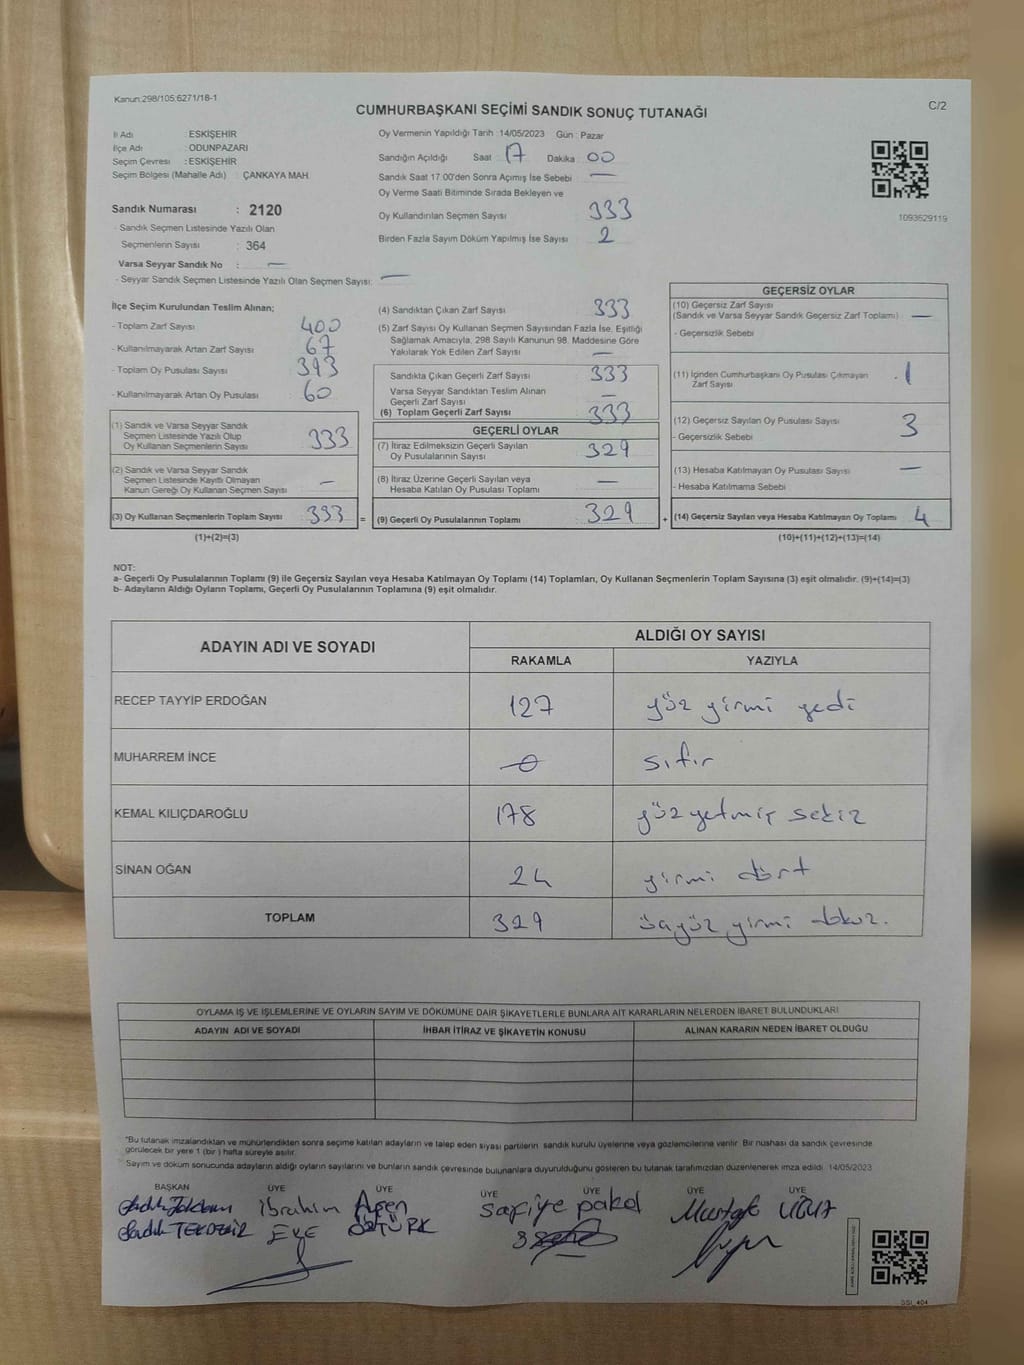 Kanun:298/105;6271/18-1
C/2
CUMHURBAŞKANI SEÇİMİ SANDIK SONUÇ TUTANAĞI
İl Adı : ESKİŞEHİR
İlçe Adı : ODUNPAZARI
Seçim Çevresi : ESKİŞEHİR
Seçim Bölgesi (Mahalle Adı) : ÇANKAYA MAH.
Sandık Numarası : 2120
- Sandık Seçmen Listesinde Yazılı Olan
Seçmenlerin Sayısı : 364
Varsa Seyyar Sandık No : —
- Seyyar Sandık Seçmen Listesinde Yazılı Olan Seçmen Sayısı: —
Oy Vermenin Yapıldığı Tarih : 14/05/2023 Gün : Pazar
Sandığın Açıldığı Saat : 17 Dakika : 00
Sandık Saat 17.00'den Sonra Açımış İse Sebebi : —
Oy Verme Saati Bitiminde Sırada Bekleyen ve
Oy Kullandırılan Seçmen Sayısı : 333
Birden Fazla Sayım Döküm Yapılmış İse Sayısı : 2
1093629119
İlçe Seçim Kurulundan Teslim Alınan;
- Toplam Zarf Sayısı : 400
- Kullanılmayarak Artan Zarf Sayısı : 67
- Toplam Oy Pusulası Sayısı : 393
- Kullanılmayarak Artan Oy Pusulası : 60
(1) Sandık ve Varsa Seyyar Sandık
Seçmen Listesinde Yazılı Olup
Oy Kullanan Seçmenlerin Sayısı : 333
(2) Sandık ve Varsa Seyyar Sandık
Seçmen Listesinde Kayıtlı Olmayan
Kanun Gereği Oy Kullanan Seçmen Sayısı : —
(3) Oy Kullanan Seçmenlerin Toplam Sayısı : 333 =
(1)+(2)=(3)
(4) Sandıktan Çıkan Zarf Sayısı : 333
(5) Zarf Sayısı Oy Kullanan Seçmen Sayısından Fazla İse, Eşitliği
Sağlamak Amacıyla, 298 Sayılı Kanunun 98. Maddesine Göre
Yakılarak Yok Edilen Zarf Sayısı : —
Sandıkta Çıkan Geçerli Zarf Sayısı : 333
Varsa Seyyar Sandıktan Teslim Alınan
Geçerli Zarf Sayısı : —
(6) Toplam Geçerli Zarf Sayısı : 333
GEÇERLİ OYLAR
(7) İtiraz Edilmeksizin Geçerli Sayılan
Oy Pusulalarının Sayısı : 329
(8) İtiraz Üzerine Geçerli Sayılan veya
Hesaba Katılan Oy Pusulası Toplamı : —
(9) Geçerli Oy Pusulalarının Toplamı : 329 +
GEÇERSİZ OYLAR
(10) Geçersiz Zarf Sayısı
(Sandık ve Varsa Seyyar Sandık Geçersiz Zarf Toplamı) : —
- Geçersizlik Sebebi :
(11) İçinden Cumhurbaşkanı Oy Pusulası Çıkmayan
Zarf Sayısı : 1
(12) Geçersiz Sayılan Oy Pusulası Sayısı : 3
- Geçersizlik Sebebi :
(13) Hesaba Katılmayan Oy Pusulası Sayısı : —
- Hesaba Katılmama Sebebi :
(14) Geçersiz Sayılan veya Hesaba Katılmayan Oy Toplamı : 4
(10)+(11)+(12)+(13)=(14)
NOT:
a- Geçerli Oy Pusulalarının Toplamı (9) ile Geçersiz Sayılan veya Hesaba Katılmayan Oy Toplamı (14) Toplamları, Oy Kullanan Seçmenlerin Toplam Sayısına (3) eşit olmalıdır. (9)+(14)=(3)
b- Adayların Aldığı Oyların Toplamı, Geçerli Oy Pusulalarının Toplamına (9) eşit olmalıdır.
ADAYIN ADI VE SOYADI ALDIĞI OY SAYISI
RAKAMLA YAZIYLA
RECEP TAYYİP ERDOĞAN 127 yüz yirmi yedi
MUHARREM İNCE 0 sıfır
KEMAL KILIÇDAROĞLU 178 yüz yetmiş sekiz
SİNAN OĞAN 24 yirmi dört
TOPLAM 329 üçyüz yirmi dokuz.
OYLAMA İŞ VE İŞLEMLERİNE VE OYLARIN SAYIM VE DÖKÜMÜNE DAİR ŞİKAYETLERLE BUNLARA AİT KARARLARIN NELERDEN İBARET BULUNDUKLARI
ADAYIN ADI VE SOYADI İHBAR İTİRAZ VE ŞİKAYETİN KONUSU ALINAN KARARIN NEDEN İBARET OLDUĞU
*Bu tutanak imzalandıktan ve mühürlendikten sonra seçime katılan adayların ve talep eden siyasi partilerin sandık kurulu üyelerine veya gözlemcilerine verilir. Bir nüshası da sandık çevresinde
görülecek bir yere 1 (bir) hafta süreyle asılır.
Sayım ve döküm sonucunda adayların aldığı oyların sayılarını ve bunların sandık çevresinde bulunanlara duyurulduğunu gösteren bu tutanak tarafımızdan düzenlenerek imza edildi. 14/05/2023
BAŞKAN ÜYE ÜYE ÜYE ÜYE ÜYE
İbrahim Safiye pakel Mustafa UĞUZ
TEKDEMİR EYE ÖZTÜRK
SSİ_404